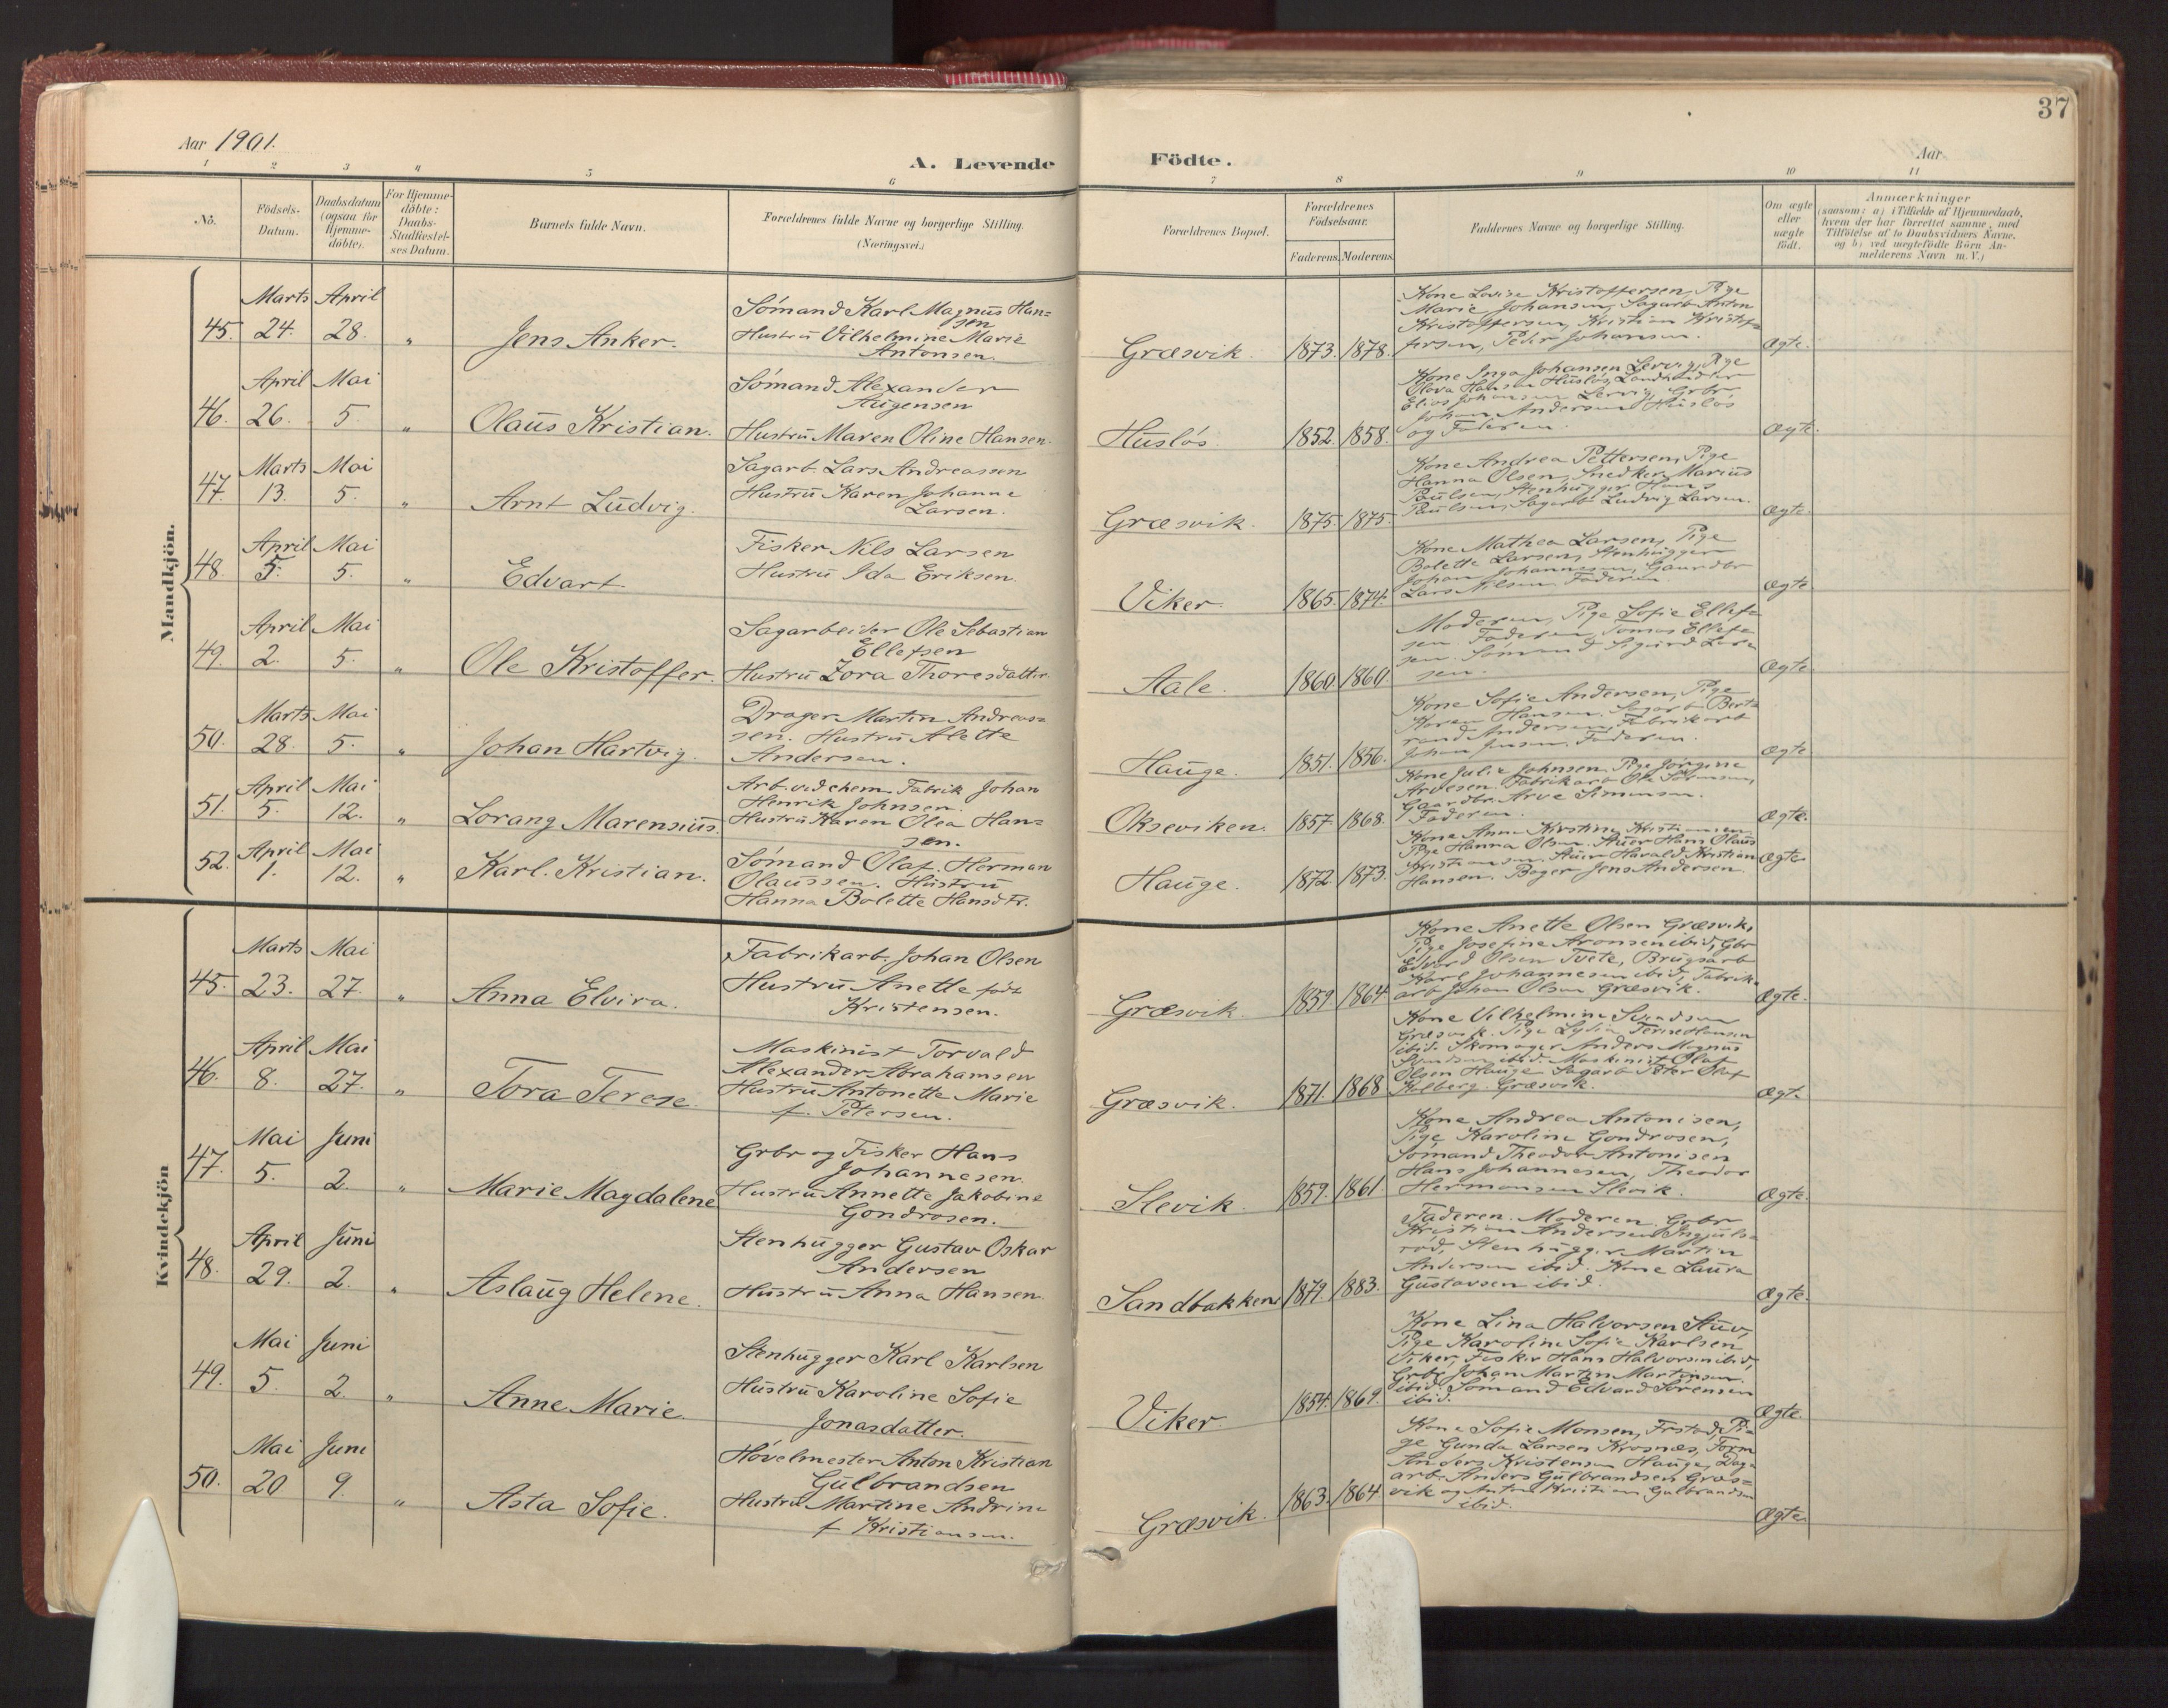 37
Aar 1901.
A. Levende Födte.
Aar
1 2 3 4 5 6 7 8 9 10 11
No.
Födsels-
Datum.
Daabsdatum
(ogsaa for
Hjemme-
döbte).
For Hjemme-
döbte:
Daabs-
Stadfæstel-
ses Datum.
Barnets fulde Navn.
Forældrenes fulde Navne og borgerlige Stilling.
(Næringsvei.)
Forældrenes Bopæl.
Forældrenes
Födselsaar.
Faderens. Moderens.
Faddernes Navne og borgerlige Stilling.
Om ægte
eller
uægte
födt.
Anmærkninger
(saasom: a) i Tilfælde af Hjemmedaab,
hvem der har forrettet samme, med
Tilföielse af to Daabsvidners Navne,
og b) ved uægtefödte Börn An-
melderens Navn m. V.)
Mandkjön.
45. Marts 24. April 28. " Jens Anker.
Sømand Karl Magnus Han=
sen
Hustru Vilhelmine Marie
Antonsen.
Græsvik. 1873. 1878.
Kone Lovise Kristoffersen, Pige
Marie Johansen, Sagarb. Anton
Kristoffersen, Kristian Kristof=
fersen, Peder Johansen.
Ægte.
46. April 26. Mai 5. " Olaus Kristian.
Sømand Alexander
Augensen
Hustru Maren Oline Hansen.
Husløs. 1852. 1858.
Kone Inga Johansen Lervig, Pige
Olava Hansen Husløs, Landhandler
Elias Johansen Lervig, Grbr.
Johan Andersen Husløs
og Faderen.
Ægte.
47. Marts 13. Mai 5. " Arnt Ludvig.
Sagarb. Lars Andreassen
Hustru Karen Johanne
Larsen.
Græsvik. 1875. 1875.
Kone Andrea Pettersen, Pige
Hanna Olsen, Snedker Marius
Paulsen, Stenhugger Hans
Paulsen, Sagarb. Ludvig Larsen.
Ægte.
48. April 5. Mai 5. " Edvart
Fisker Nils Larsen
Hustru Ida Eriksen.
Viker. 1865. 1874.
Kone Mathea Larsen, Pige
Bolette Larsen, Stenhugger
Johan Johannesen, Gaardbr
Lars Nilsen. Faderen.
Ægte
49. April 2. Mai 5. " Ole Kristoffer.
Sagarbeider Ole Sebastian
Ellefsen
Hustru Zora Thoresdatter.
Aale. 1860. 1860.
Moderen, Pige Sofie Ellef=
sen. Faderen, Tomas Ellef=
sen. Sømand Sigurd Lar=
sen.
Ægte
50. Marts 28. Mai 5. " Johan Hartvig.
Drager Martin Andreas=
sen. Hustru Alette
Andersen.
Hauge. 1851. 1856.
Kone Sofie Andersen, Pige
Karen Hansen. Sagarb. Bert=
rand Andersen, Fabrikarb
Johan Jensen. Faderen.
Ægte
51. April 5. Mai 12. " Lorang Marensius.
Arb. ved chem. Fabrik Johan
Henrik Johnsen.
Hustru Karen Olea Han=
sen.
Okseviken. 1857. 1868.
Kone Julie Johnsen. Pige Jørgine
Arvesen. Fabrikarb Ole Simensen,
Gaardbr. Arve Simensen.
Faderen.
Ægte.
52. April 1. Mai 12. " Karl. Kristian.
Sømand Olaf Herman
Olaussen. Hustru
Hanna Bolette Hansdtr.
Hauge. 1872 1873.
Kone Anne Kirstine Kristiansen
Pige Hanna Olsen. Stuer Hans Olaus
Kristiansen. Stuer Harald Kristian
Hansen. Bager Jens Andersen.
Ægte
Kvindekjön
45. Marts 23. Mai 27. " Anna Elvira.
Fabrikarb. Johan Olsen
Hustru Anette født
Kristensen.
Græsvik. 1859 1864
Kone Anette Olsen Græsvik,
Pige Josefine Aronsen ibid, Gbr
Edvard Olsen Tvete, Brugsarb
Karl Johannesen ibid, Fabrik=
arb Johan Olsen Græsvik.
Ægte.
46. April 8. Mai 27. " Tora Terese.
Maskinist Torvald
Alexander Abrahamsen
Hustru Antonette Marie
f. Petersen.
Græsvik. 1871. 1868
Kone Vilhelmine Svendsen
Græsvik. Pige Lydia Terine Hansen
ibid. Skomager Anders Magnus
Svendsen ibid. Maskinist Olaf
Olsen Hauge. Sagarb Peter Olaf
Holberg. Græsvik.
Ægt.
47. Mai 5. Juni 2. " Marie Magdalene
Grbr og Fisker Hans
Johannesen.
Hustru Annette Jakobine
Gondrosen.
Slevik. 1859. 1861
Kone Andrea Antonisen,
Pige Karoline Gondrosen,
Sømand Theodor Antonisen
Hans Johannesen, Theodor
Hermansen Slevik.
Ægte.
48. April 29. Juni 2. " Aslaug Helene.
Stenhugger Gustav Oskar
Andersen
Hustru Anna Hansen.
Sandbakken 1879. 1883.
Faderen. Moderen. Grbr
Kristian Andersen
Stenhugger Martin
Andersen ibid. Kone Laura
Gustavsen ibid.
Ægte.
49. Mai 5. Juni 2. " Anne Marie.
Stenhugger Karl Karlsen
Hustru Karoline Sofie
Jonasdatter.
Viker. 1854. 1869.
Kone Lina Halvorsen Stuv,
Pige Karoline Sofie Karlsen
Viker, Fisker Hans Halvorsen ibid,
Grbr Johan Martin Martinsen
ibid. Sømand Edvard Sørensen
ibid.
Ægte.
50. Mai 20 Juni 9. " Asta Sofie.
Høvelmester Anton Kristian
Gulbrandsen
Hustru Martine Andrine
f Kristiansen.
Græsvik. 1863. 1864
Kone Sofie Monsen, Frstad, Pi=
ge Gunda Larsen Krosnæs, Form
Anders Kristensen Hauge, Dag=
arb. Anders Gulbrandsen Græs=
vik og Anton Kristian Gulbrandsen
ibid.
Ægte.